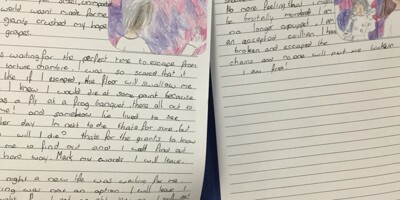 world wasn't made for me.
giants crushed my hope
grapes.
waiting for the perfect time to escape from
torture chambre I was so scared that it
like if I escaped, the floor will swallow me
I knew I would die at some point because
as a fly at a frog banquet, theres all out to
me! and somehow i've lived to see
her day. In next to die thats for sure, but
will I die? thats for the giants to know
me to find out and I will find out
hard way. Mark my words I will leave.
night a new life was waiting for me
was not an option. I will leave I
No more feeling that I
to brutally murdered I am
no longer occupied. I am
an accepted civilian. I have
broken and escaped the
chains and no one will put me back in
I am free!